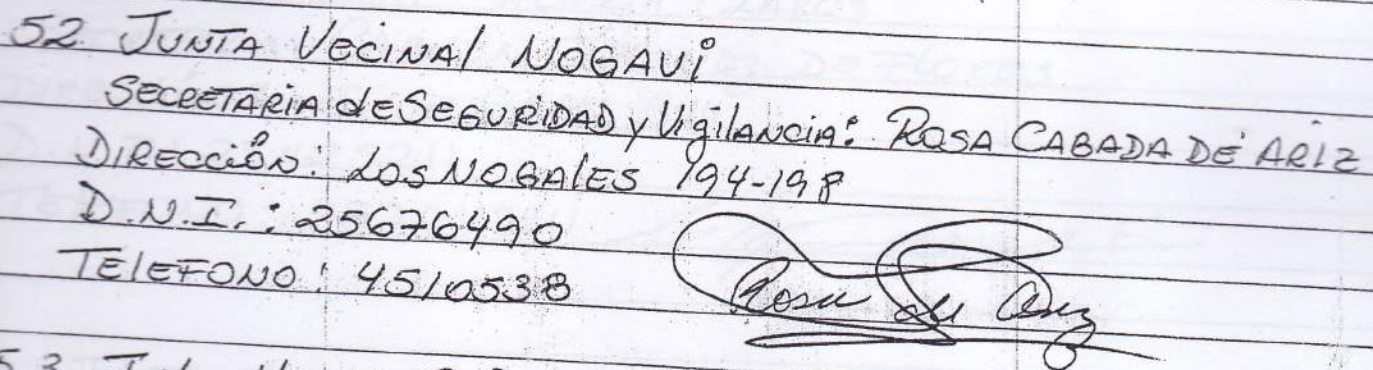 52 JUNTA VECINAL NOGAVI
SECRETARIA de SEGURIDAD y VigilANCiA: ROSA CABADA DE ARIZ
DIRECCIÓN: LOS NOGALES 194-198
D.N.I.: 25676490
TELEFONO: 4510538
Rosa de Ariz
53